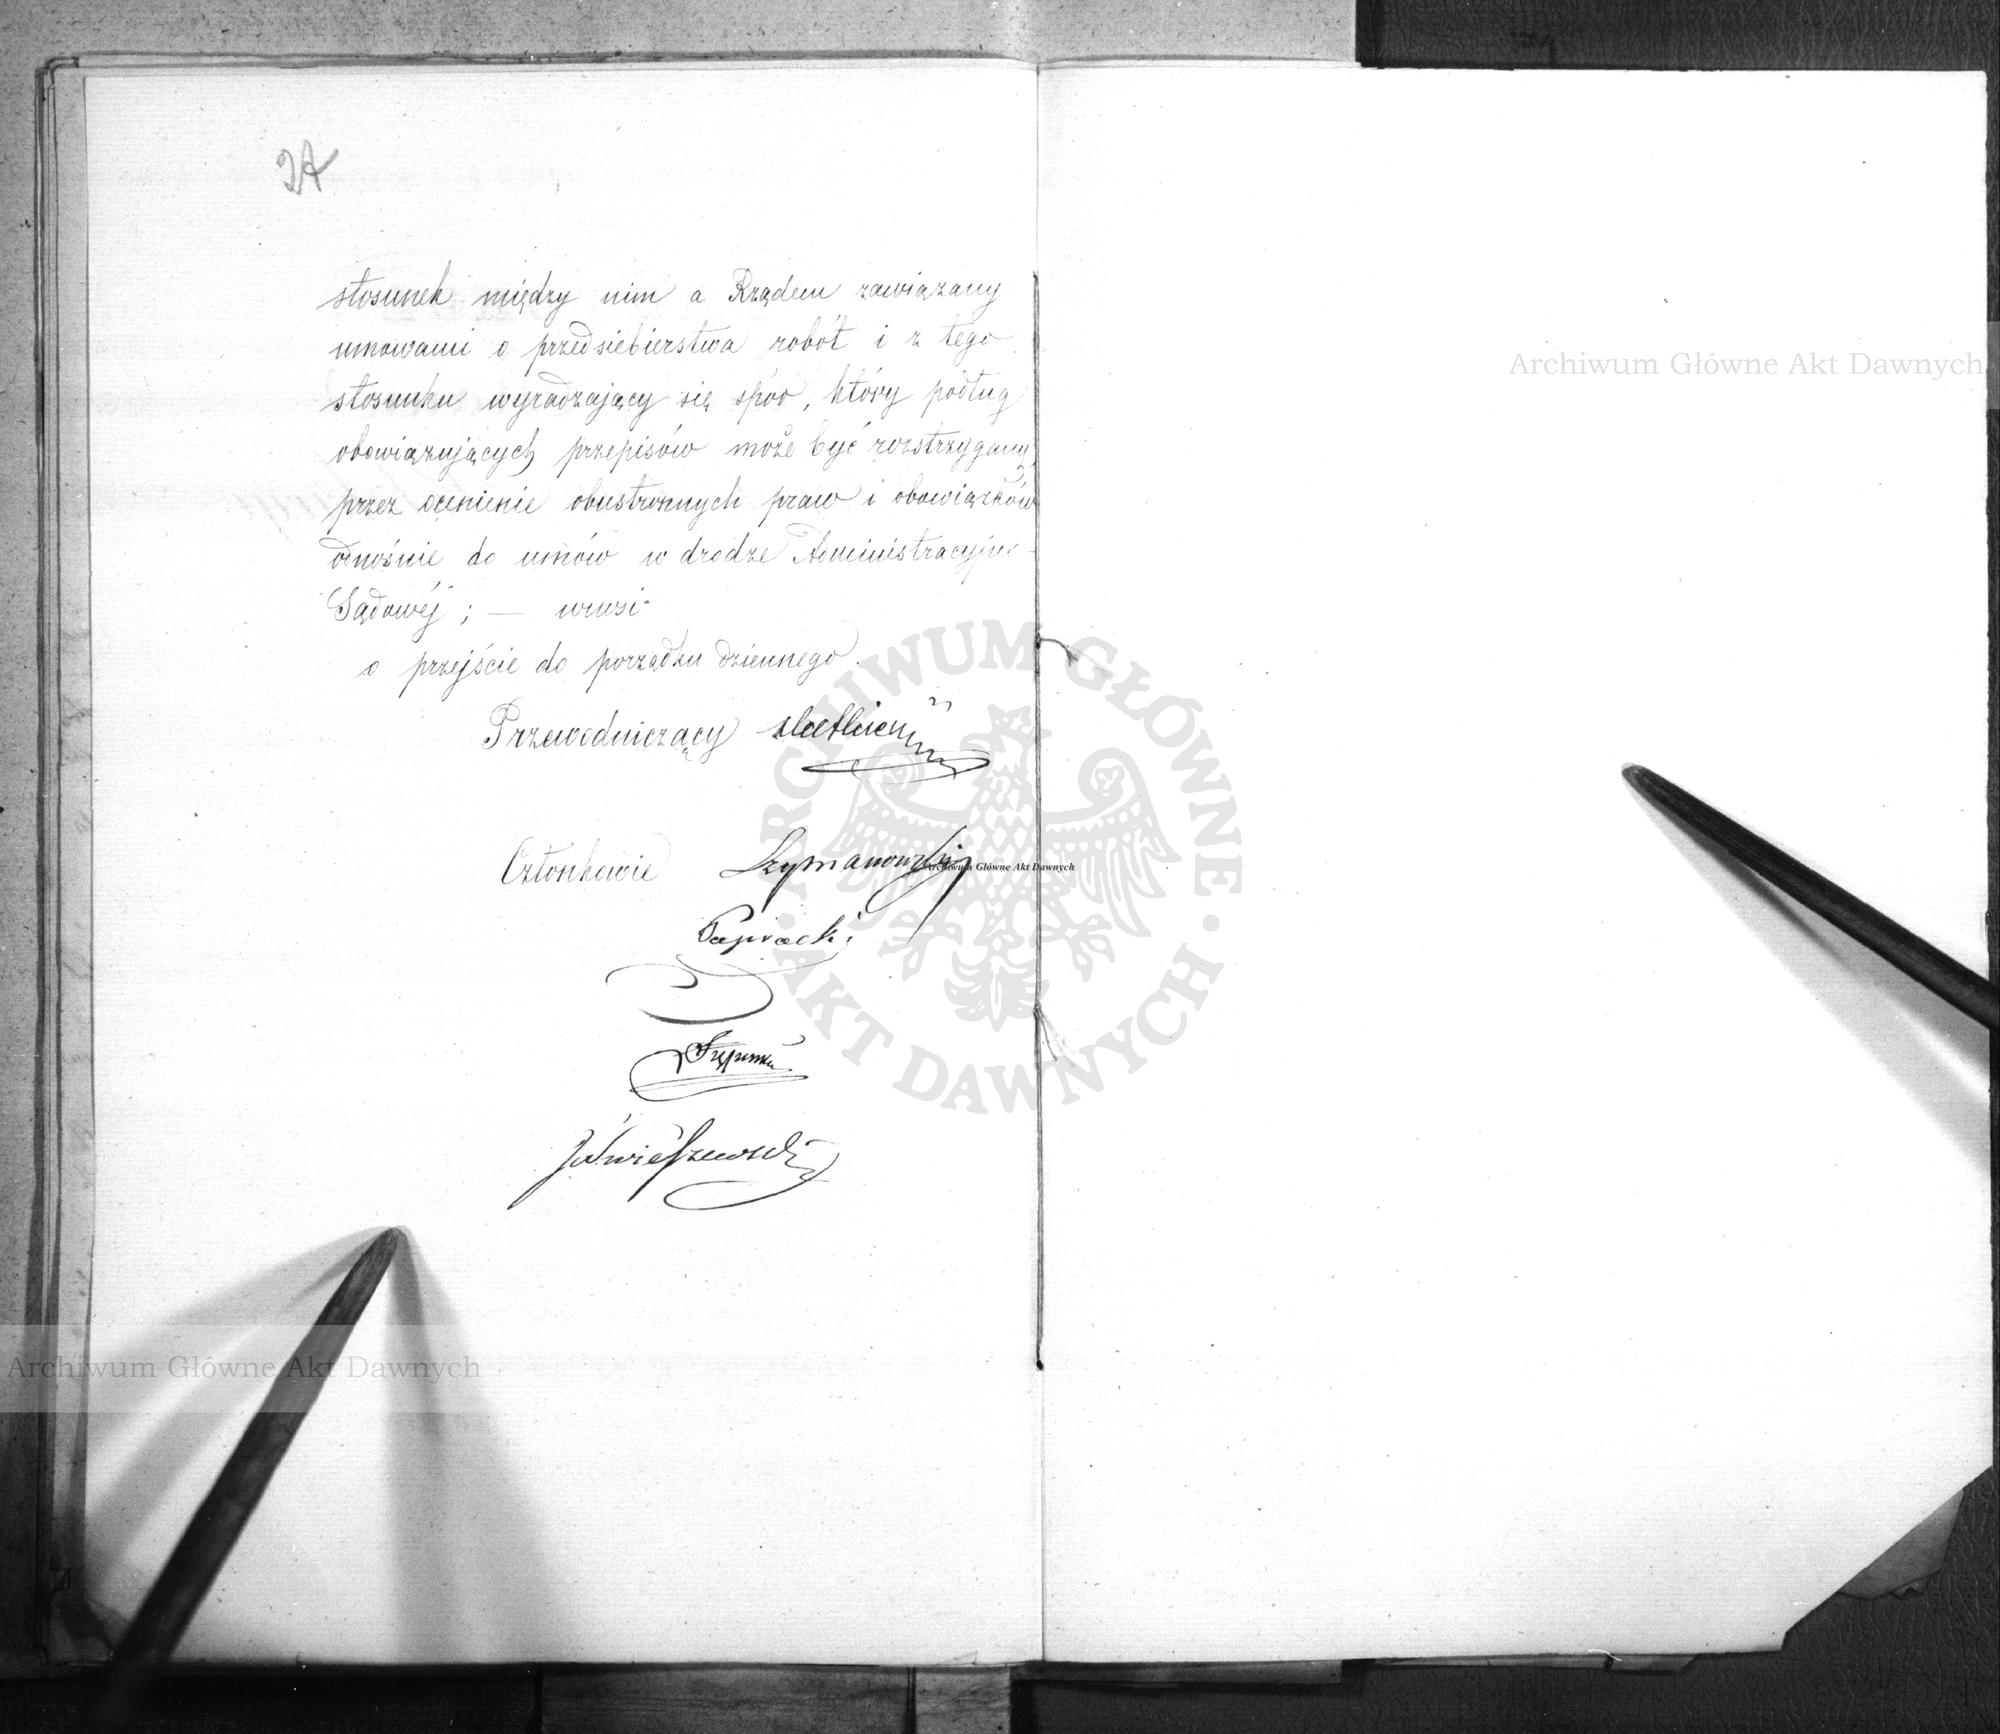 stosunek między nim a Rządem zawiązany
umowami o przedsiebierstwa robót i z tego
stosunku wyradzający się spór, który podług
obowiązujących przepisów może być rozstrzygany
przez ocenienie obustronnych praw i obowiązków
odnośnie do umów w drodze Administracyjno-
Sądowéj; — wnosi
o przejście do porządku dziennego.
Przewodniczący
Członkowie Szymanowski
Paprocki
Archiwum Główne Akt Dawnych
Archiwum Główne Akt Dawnych
Archiwum Główne Akt Dawnych
ARCHIWUM GŁÓWNE AKT DAWNYCH